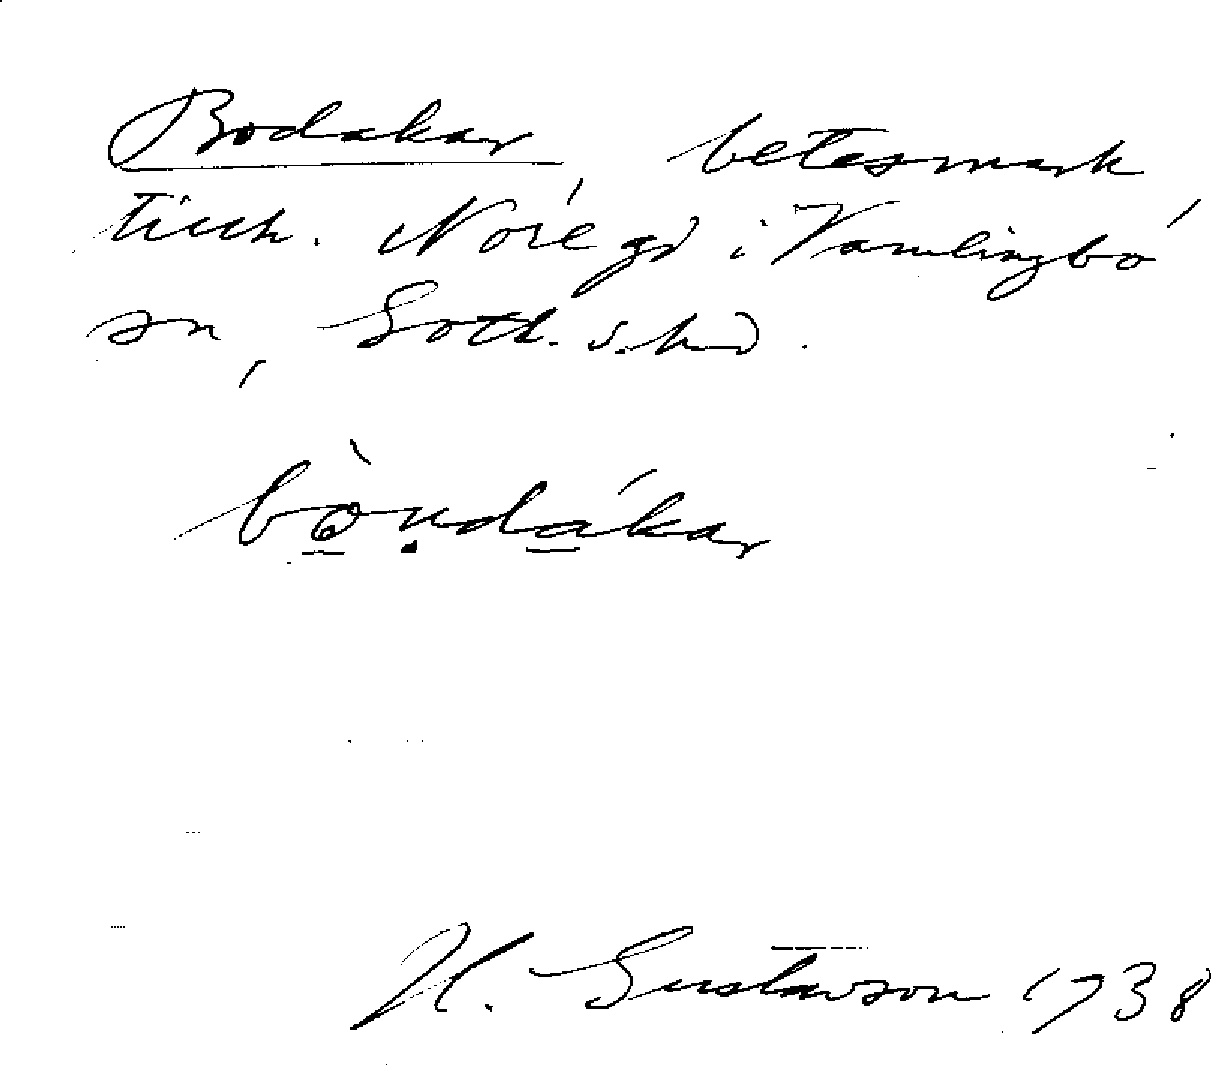 Bodakar, betesmark
tillh. Nore gd i Vamlingbo
sn, Gotl. s. hd.
bòndákar
H. Gustavson 1938